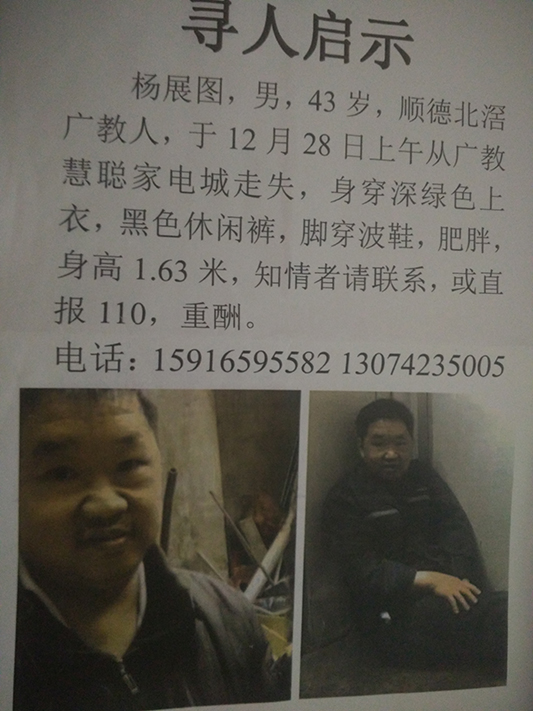 寻人启示
杨展图，男，43 岁，顺德北滘
广教人，于 12 月 28 日上午从广教
慧聪家电城走失，身穿深绿色上
衣，黑色休闲裤，脚穿波鞋，肥胖，
身高 1.63 米，知情者请联系，或直
报 110，重酬。
电话：15916595582 13074235005